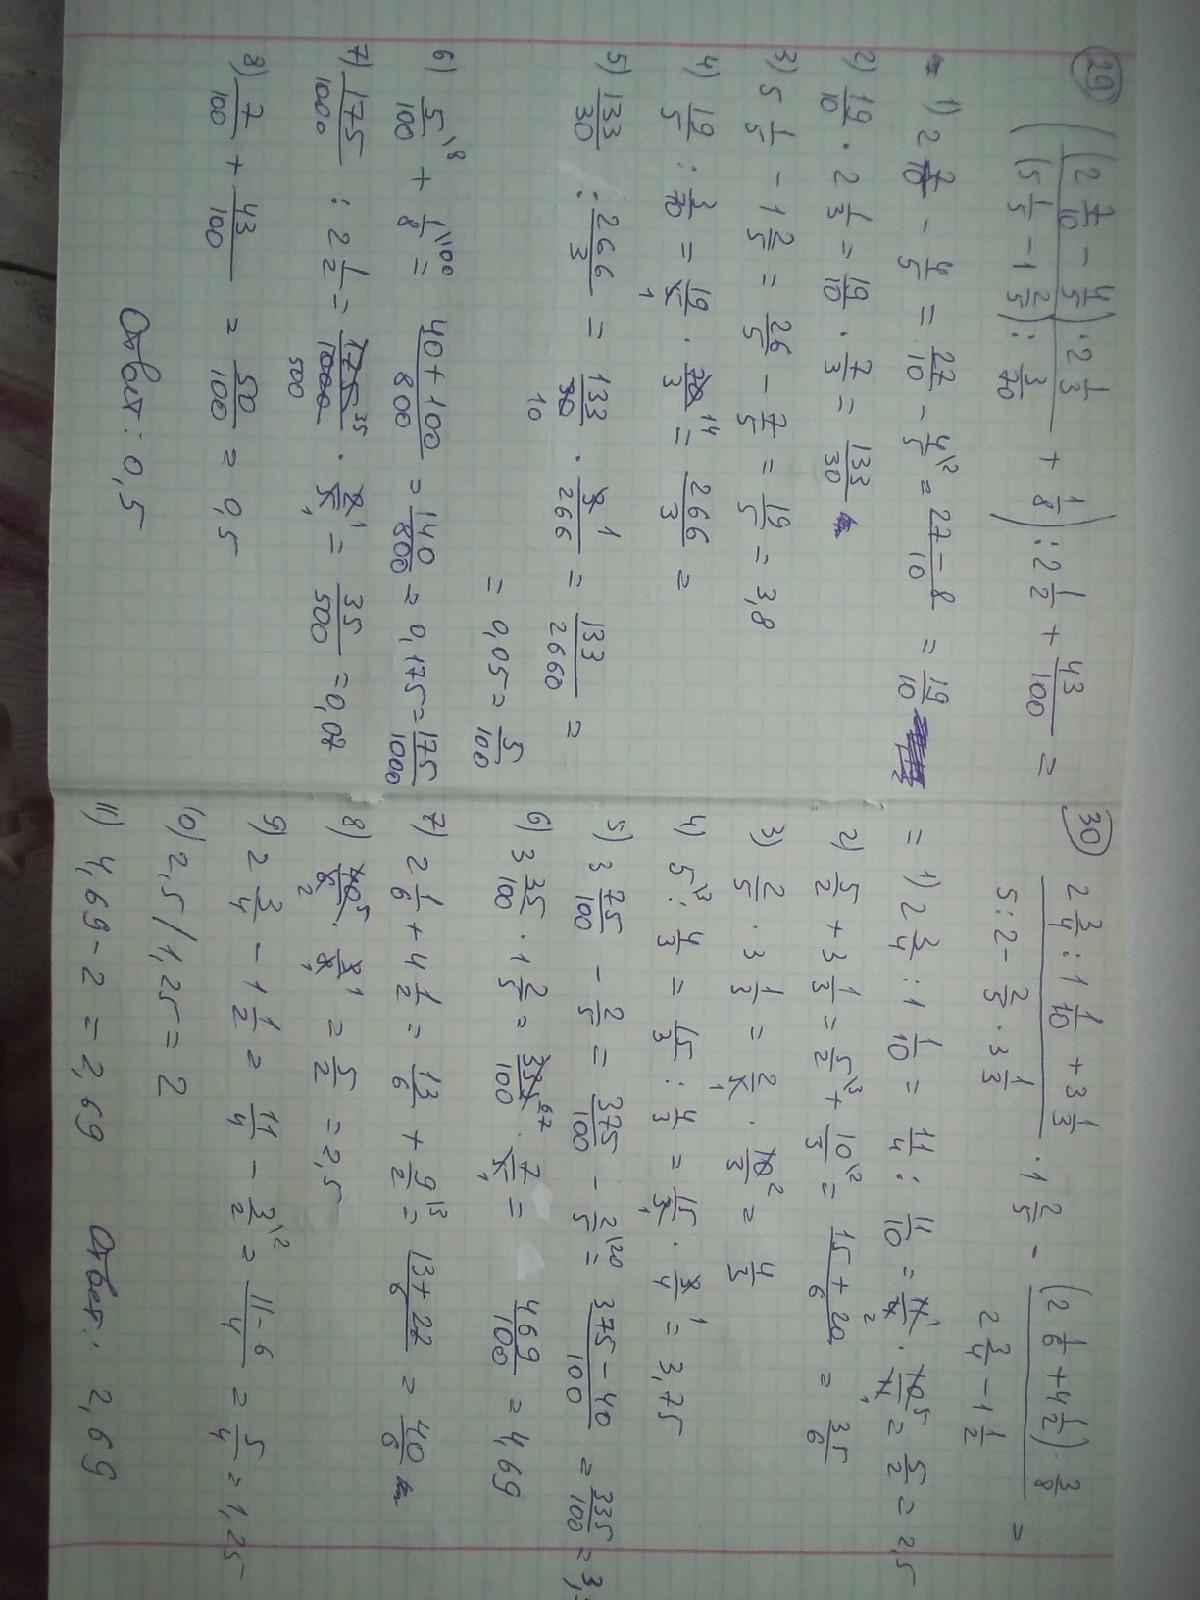 29) ((2 7/10 - 4/5) · 2 1/3 / (5 1/5 - 1 2/5) : 3/70 + 1/8) : 2 1/2 + 43/100 =
1) 2 7/10 - 4/5 = 27/10 - 4/5 \2 = 27-8/10 = 19/10
2) 19/10 · 2 1/3 = 19/10 · 7/3 = 133/30
3) 5 1/5 - 1 2/5 = 26/5 - 7/5 = 19/5 = 3,8
4) 19/5 : 3/70 = 19/5 1 · 70/3 14 = 266/3 =
5) 133/30 : 266/3 = 133/30 10 · 3/266 1 = 133/2660 =
= 0,05 = 5/100
6) 5/100 \8 + 1/8 \100 = 40+100/800 = 140/800 = 0,175 = 175/1000
7) 175/1000 : 2 1/2 = 175/1000 35 500 · 2/5 1 1 = 35/500 = 0,07
8) 7/100 + 43/100 = 50/100 = 0,5
Ответ: 0,5
30) 2 3/4 : 1 1/10 + 3 1/3 / 5 : 2 - 2/5 · 3 1/3 · 1 2/5 - (2 1/6 + 4 1/2) · 3/8 / 2 3/4 - 1 1/2 =
= 1) 2 3/4 : 1 1/10 = 11/4 : 11/10 = 11/4 1 2 · 10/11 5 1 = 5/2 = 2,5
2) 5/2 + 3 1/3 = 5/2 \3 + 10/3 \2 = 15+20/6 = 35/6
3) 2/5 · 3 1/3 = 2/5 1 · 10/3 2 = 4/3
4) 5 \3 : 4/3 = 15/3 : 4/3 = 15/3 1 · 3/4 1 = 3,75
5) 3 75/100 - 2/5 = 375/100 - 2/5 \20 = 375-40/100 = 335/100 = 3,
6) 3 35/100 · 1 2/5 = 335/100 67 · 7/5 1 = 469/100 = 4,69
7) 2 1/6 + 4 1/2 = 13/6 + 9/2 \3 = 13+27/6 = 40/6
8) 40/6 5 2 · 3/8 1 1 = 5/2 = 2,5
9) 2 3/4 - 1 1/2 = 11/4 - 3/2 \2 = 11-6/4 = 5/4 = 1,25
10) 2,5/1,25 = 2
11) 4,69 - 2 = 2,69 Ответ: 2,69